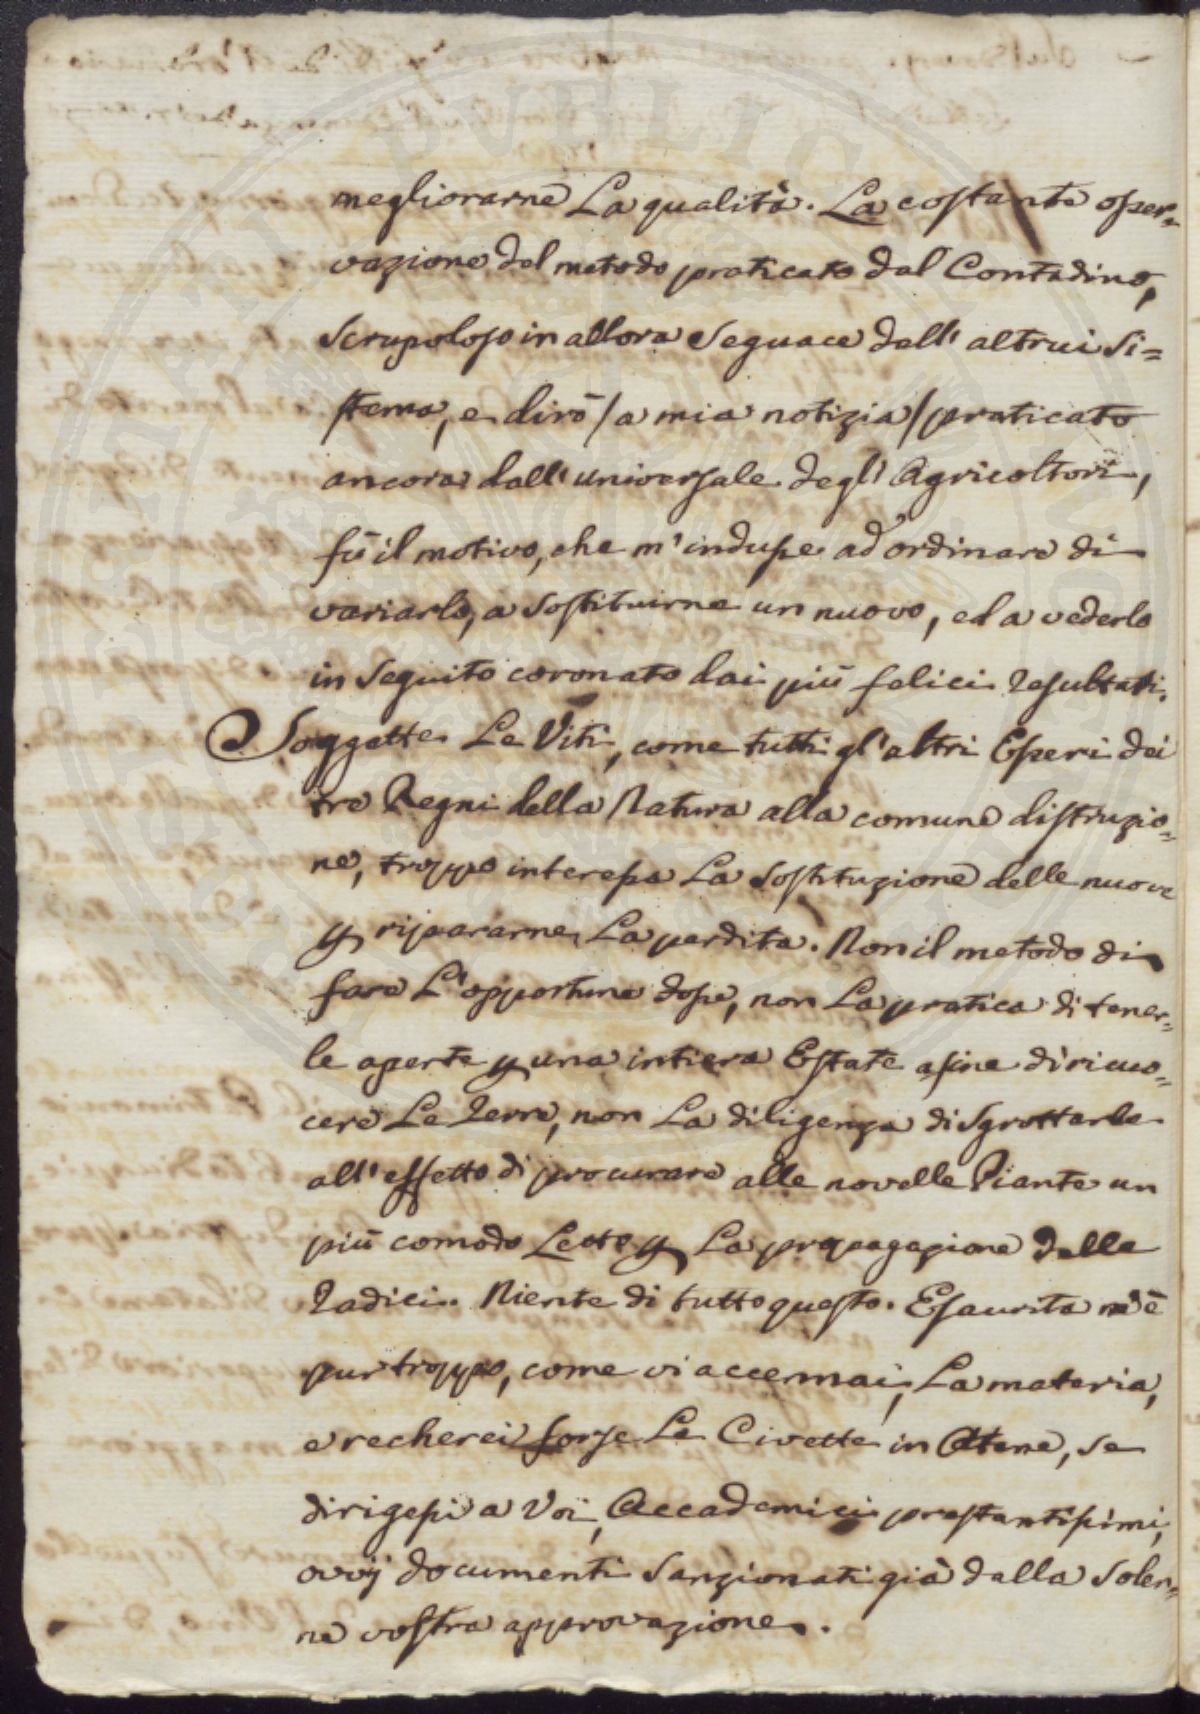 megliorarne La qualità. La costante osser=
vazione del metodo praticato dal Contadino,
Scrupoloso in allora Seguace dell' altrui Si=
stema, e dirò /a mia notizia/ praticato
ancora dall' universale degl' Agricoltori,
fù il motivo, che m' indusse ad ordinare di
variarlo, a Sostituirne un nuovo, ed a vederlo
in Seguito coronato dai più felici resultati.
Soggette Le Viti, come tutti gl' altri Esseri dei
tre Regni della Natura alla comune distruzio=
ne, troppo interessa La Sostituzione delle nuove
p ripararne La perdita. Non il metodo di
fare L' opportune fosse, non La pratica di tener=
le aperte p una intiera Estate afine di ricuo=
cere Le Terre, non La diligenza di Sgrottarle
all' effetto di procurare alle novelle Piante un
più comodo Letto p La propagazione delle
radici. Niente di tutto questo. Esaurita m' è
pur troppo, come vi accennai, La materia,
e recherei forse Le Civette in Atene, se
dirigessi a Voi, Accademici prestantissimi,
ovvij documenti Sanzionati già dalla Solen=
ne vostra approvazione.
PVBLIC